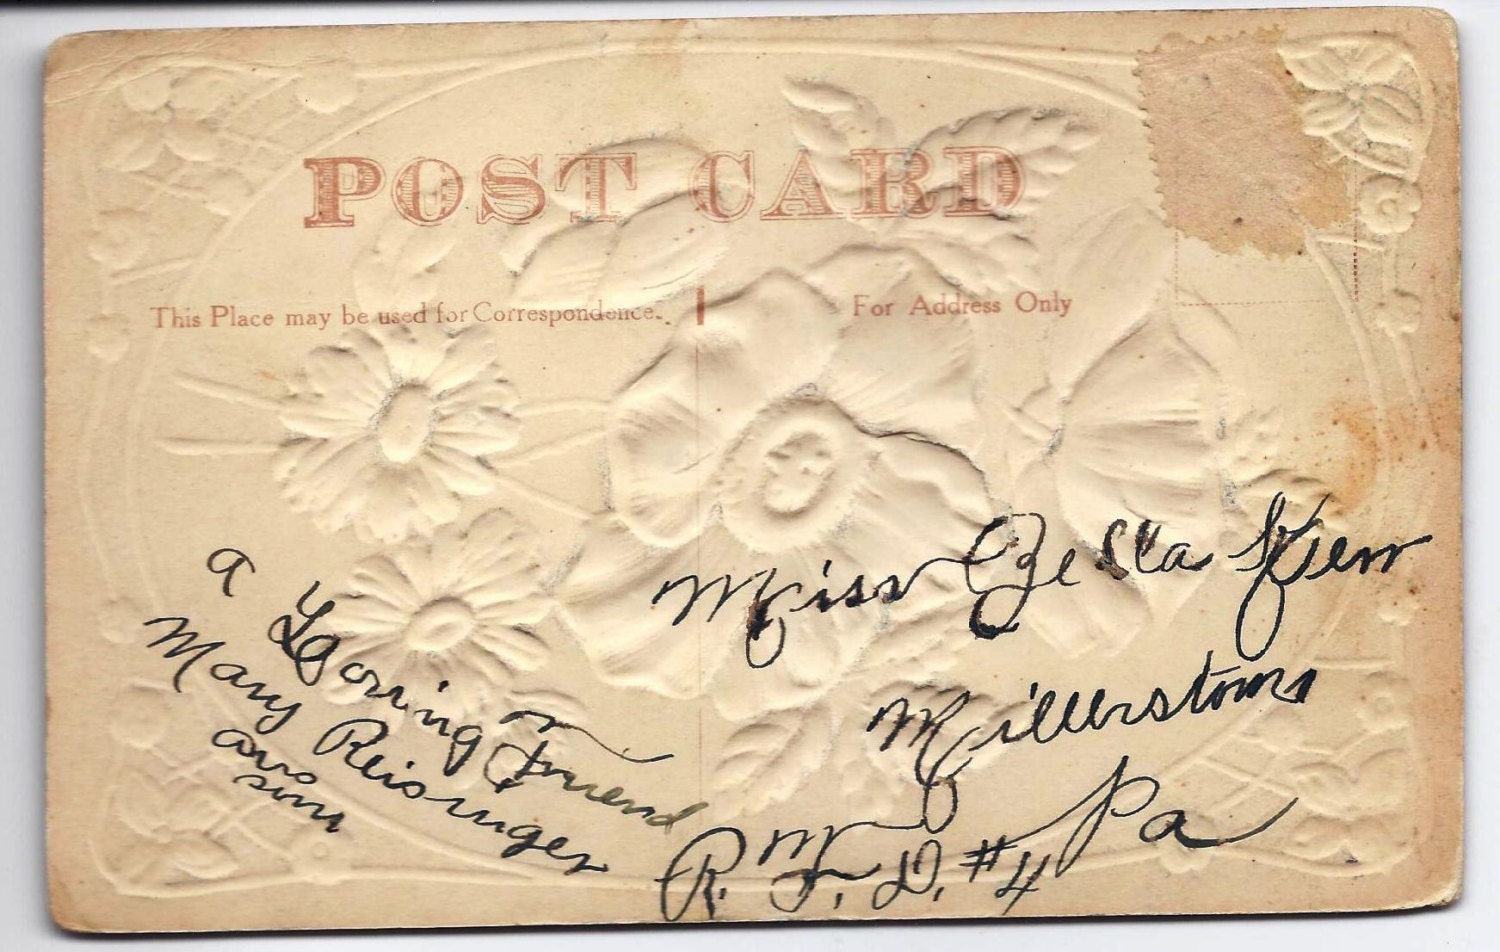 POST CARD
This Place may be used for Correspondence.
For Address Only
a Loving Friend
Mary Reisinger
Miss Zella
Millerstown
Pa
R. F. D. #4